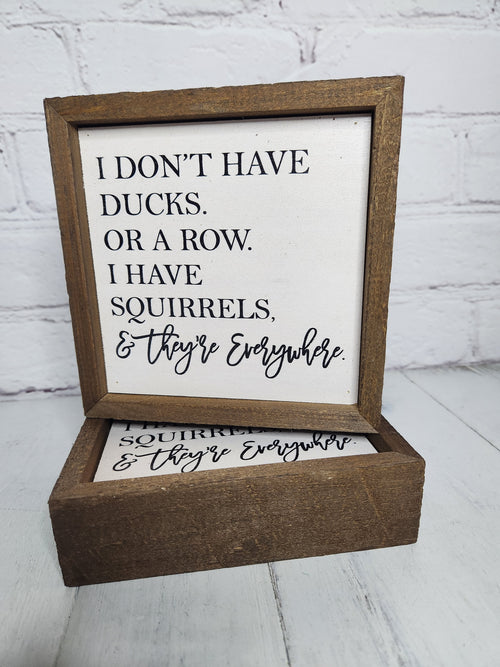 I DON'T HAVE
DUCKS.
OR A ROW.
I HAVE
SQUIRRELS,
& they're Everywhere.
SQUIRRELS,
& they're Everywhere.